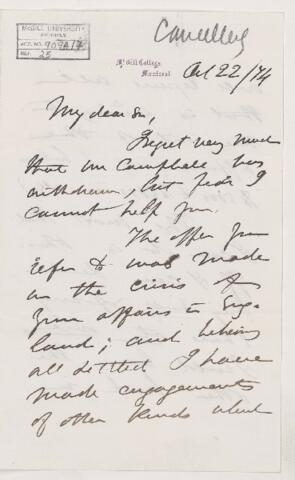 McGILL UNIVERSITY
ARCHIVES
ACC. NO. 909A/7
REF. 25
McGill College,
Montreal
Oct 22/74
My dear Sir,
I regret very much
that Mr Campbell has
withdrawn, but fear I
cannot help you.
The offer you
refer to was made
in the crisis of
your affairs in Eng-
land; and believing
all settled I have
made engagements
of other kinds